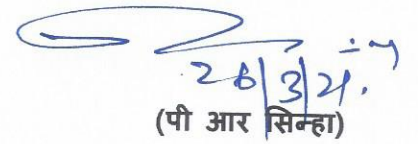 26/3/21.
(पी आर सिन्हा)